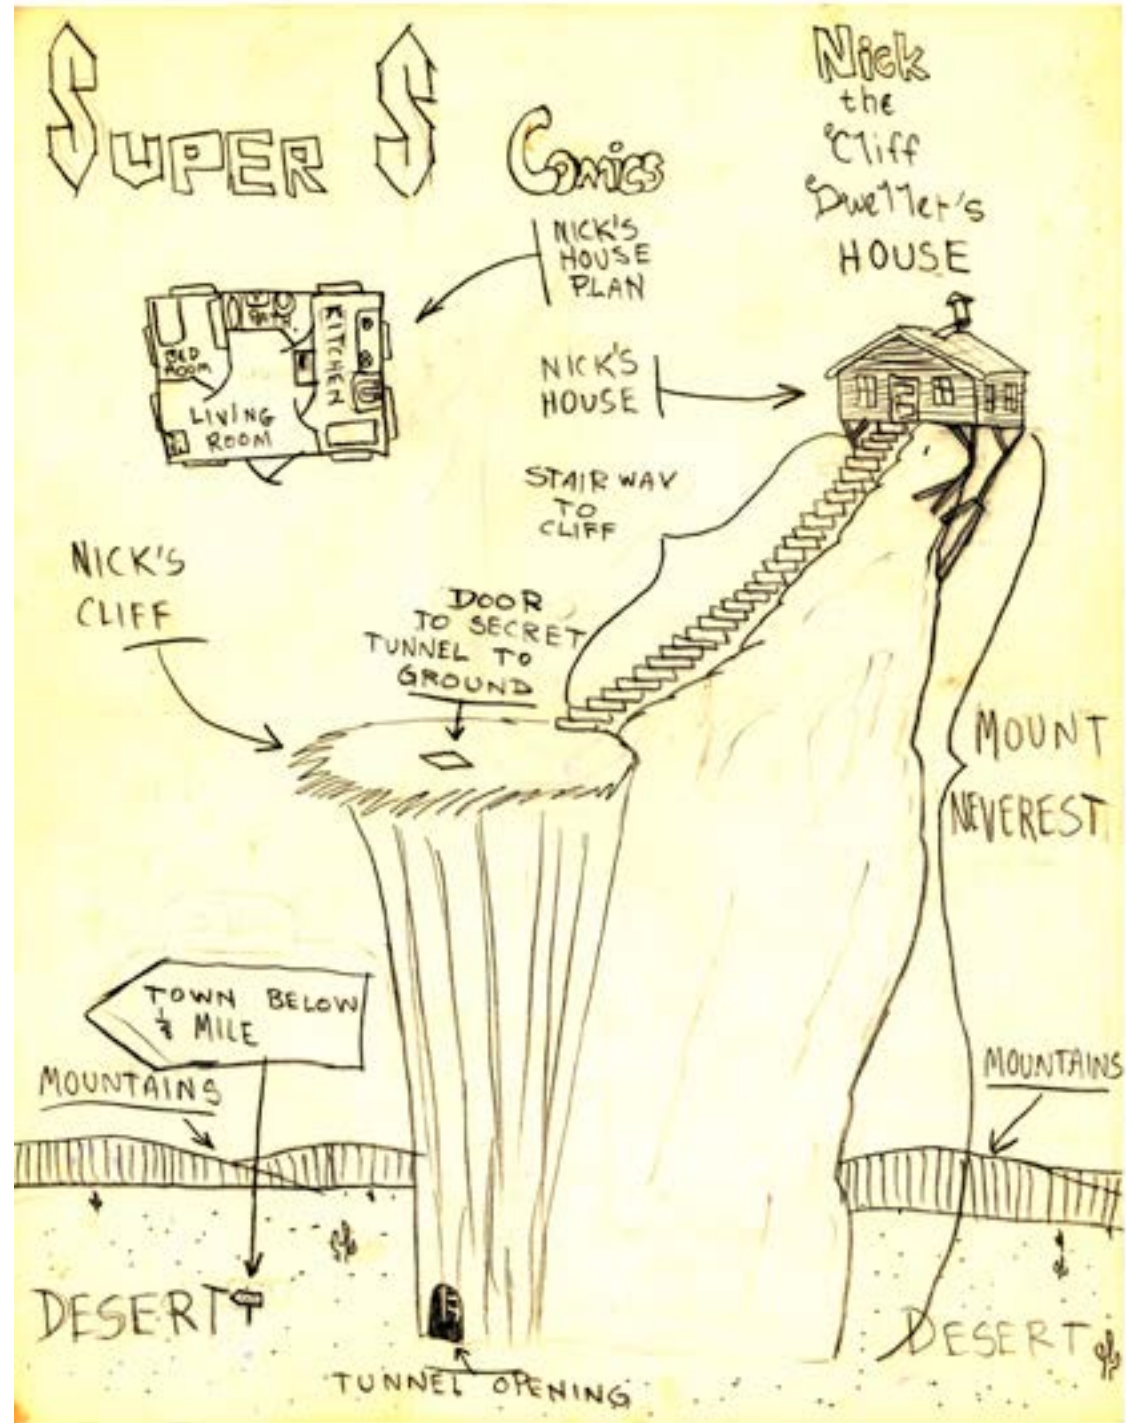 SUPER S COMICS
Nick
the
Cliff
Dweller's
HOUSE
NICK'S
HOUSE
PLAN
BED
ROOM
BATH
KITCHEN
LIVING
ROOM
NICK'S
HOUSE
STAIRWAY
TO
CLIFF
NICK'S
CLIFF
DOOR
TO SECRET
TUNNEL TO
GROUND
MOUNT
NEVEREST
TOWN BELOW
MILE
MOUNTAINS
MOUNTAINS
DESERT
DESERT
TUNNEL OPENING